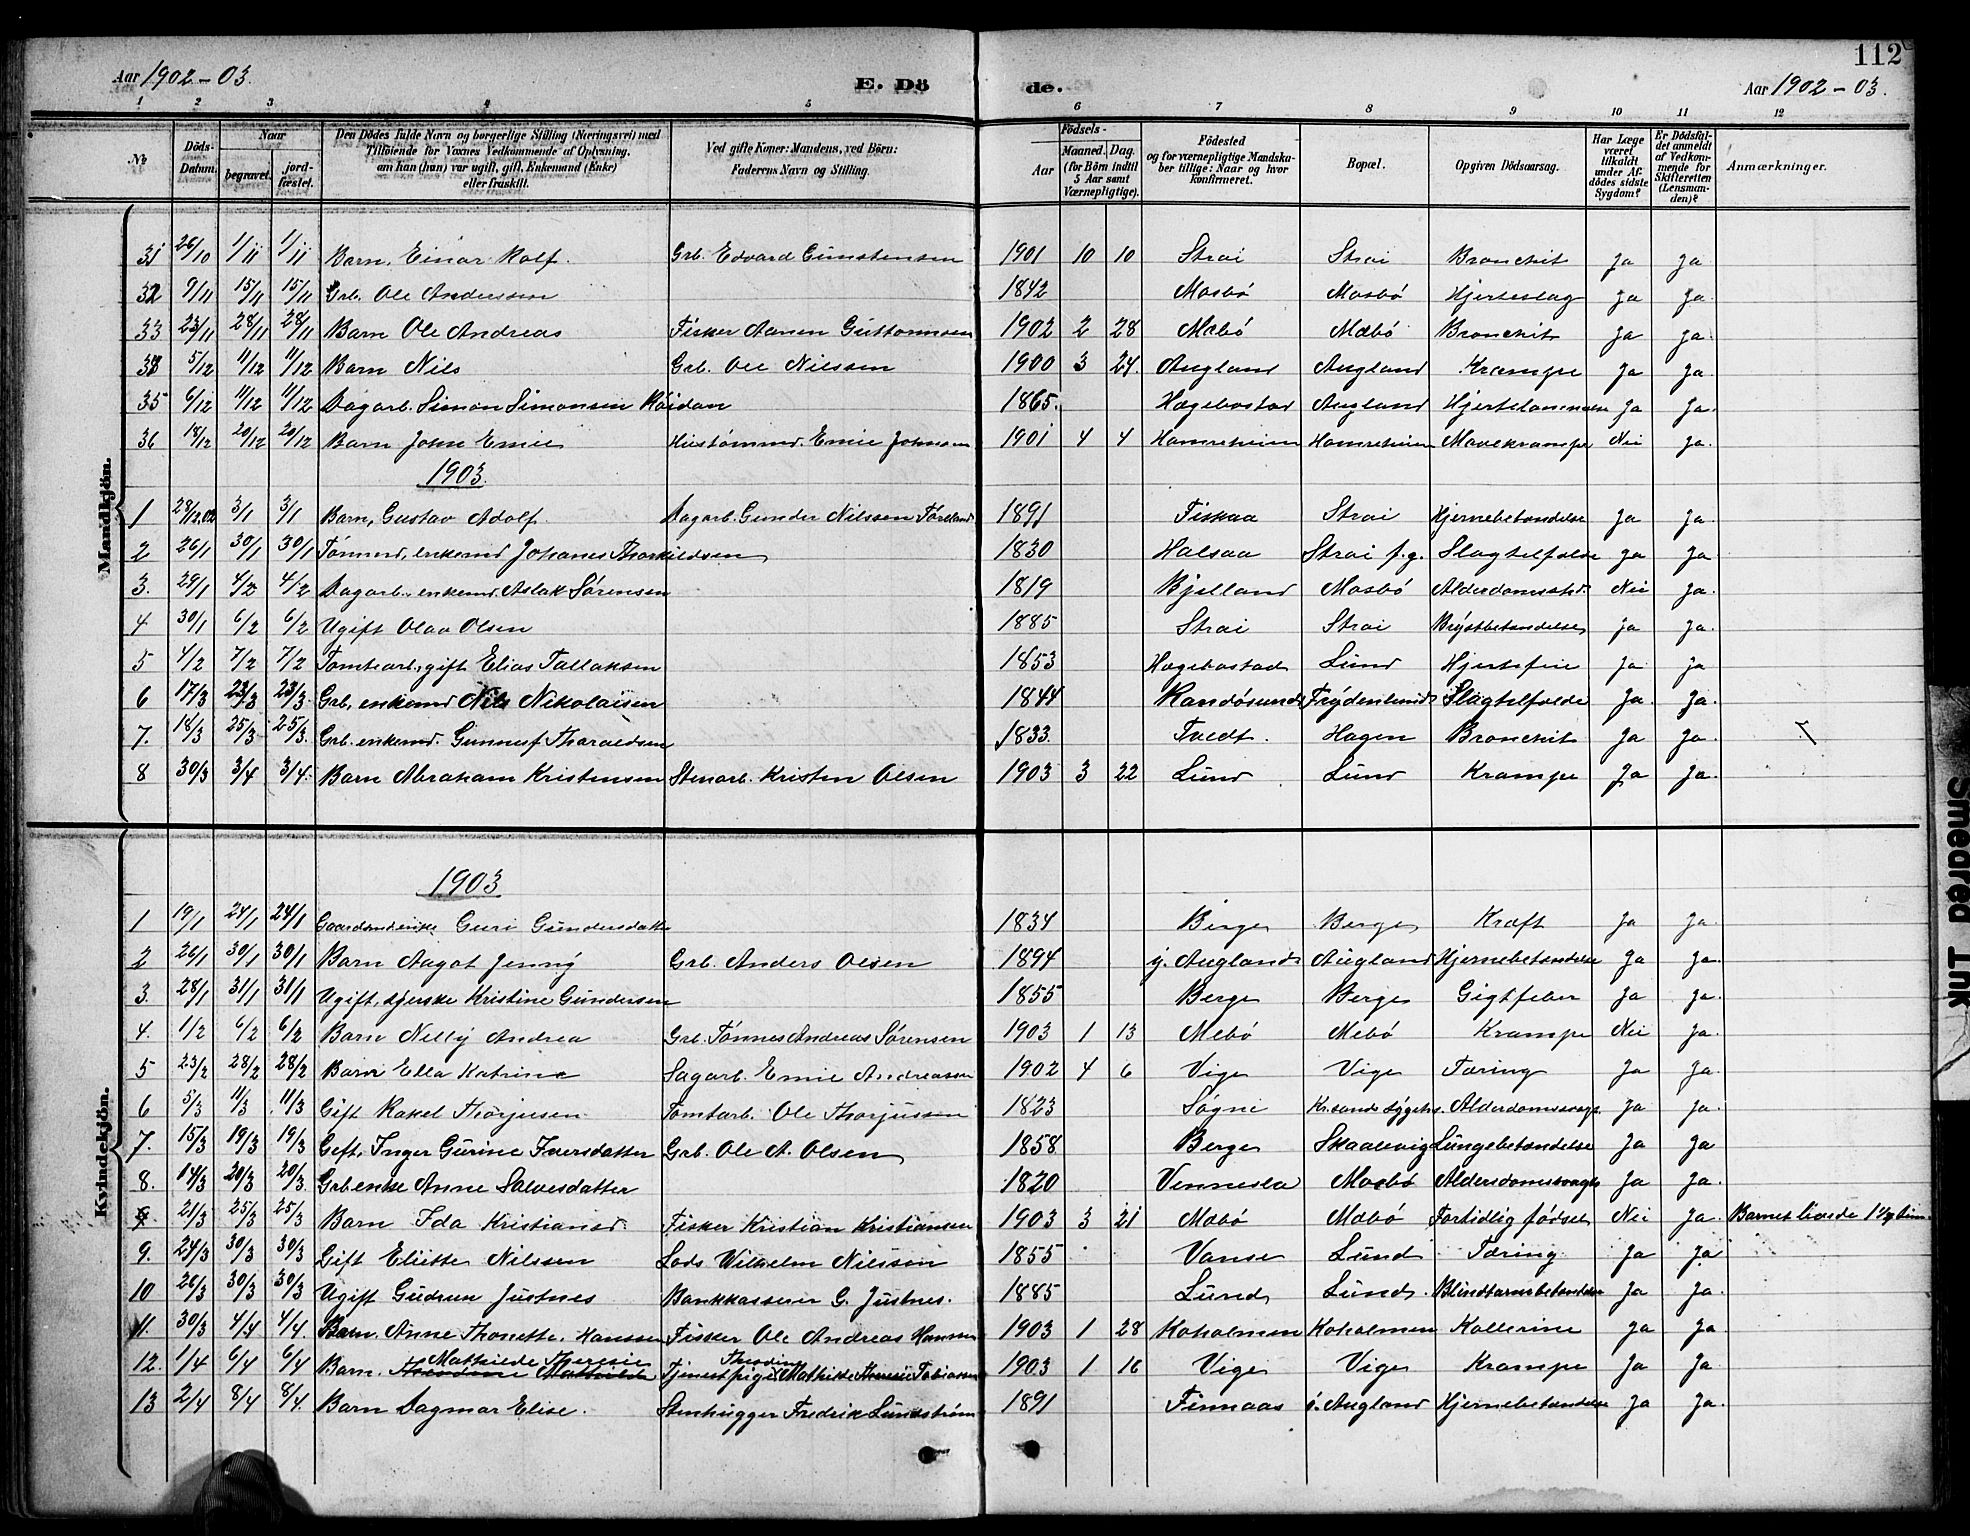 112
Aar 1902-03. E. Dö de. Aar 1902-03.
1 2 3 4 5 6 7 8 9 10 11 12
No Döds-Datum. Naar begravet. jord-fæstet. Den Dödes fulde Navn og borgerlige Stilling (Næringsvei) med Tilföiende for Voxnes Vedkommende af Oplysning, om han (hun) var ugift, gift, Enkemand (Enke) eller fraskilt. Ved gifte Koner: Mandens, ved Börn: Faderens Navn og Stilling. Födsels- Aar Maaned. Dag. (for Börn indtil 5 Aar samt Værnepligtige). Födested og for værnepligtige Mandskaber tillige: Naar og hvor konfirmeret. Bopæl. Opgiven Dödsaarsag. Har Læge været tilkaldt under Afdödes sidste Sygdom? Er Dödsfaldet anmeldt af Vedkommende for Skifteretten (Lensmanden)? Anmærkninger.
Mandkjön.
31 26/10 1/11 1/11 Barn, Einar Rolf. Grb. Edvard Gunstensen 1901 10 10 Strai Strai Bronchit Ja Ja
32 9/11 15/11 15/11 Grb. Ole Anderssen 1842 Mosbö Mosbö Hjerteslag Ja Ja.
33 23/11 28/11 28/11 Barn Ole Andreas Fisker Aanen Guttormsen 1902 2 28 Mæbö Mæbö Bronchit Ja Ja.
34 5/12 11/12 11/12 Barn Nils Grb. Ole Nilssen 1900 3 24. Augland Augland Krampe Ja Ja.
35 6/12 11/12 11/12 Dagarb. Simon Simonsen 1865. Hægebostad Augland Hjertelammelse Ja Ja.
36 18/12 20/12 20/12 Barn John Emil Hustømmd. Emil Johnsen 1901 4 4 Hamreheien Hamreheien Mavekrampe Nei Ja.
1903.
1 28/12.02 3/1 3/1 Barn, Gustav Adolf. Dagarb. Gunder Nilssen Føreland 1891 Fiskaa Strai Hjernebetændelse Ja Ja.
2 26/1 30/1 30/1 Tømmd, enkemd Johanes Thorkildsen 1830 Halsaa Strai f.g. Slagtilfælde Ja Ja
3. 29/1 4/2 4/2 Dagarb. enkemd. Aslak Sørensen 1819 Bjelland Mosbö Alderdomssvd. Nei Ja.
4 30/1 6/2 6/2 Ugift Olav Olsen 1885 Strai Strai Brystbetændelse Ja Ja.
5 4/2 7/2 7/2 Tomtearb, gift Elias Tallaksen 1853 Hægebostad Lund Hjertefeil Ja Ja
6 17/3 23/3 23/3. Grb. enkemd Nils Nikolaisen 1844 Randösund Frydenlund Slagtilfælde Ja. Ja.
7. 18/3 25/3 25/3. Grb. enkemd. Gunnuf Tharaldsen 1833. Tvedt. Hagen Bronchit Ja Ja.
8 30/3 3/4 3/4. Barn Abraham Kristensen Stenarb. Kristen Olsen 1903 3 22 Lund Lund Krampe Ja Ja.
Kvindekjön.
1903
1 19/1 24/1 24/1 Gaardmdenke Guri Gundersdatter 1834 Berge Berge Kræft Ja Ja.
2 26/1 30/1 30/1 Barn Aagot Jenny Grb. Anders Olsen 1894 y. Augland Augland Hjernebetændelse Ja Ja.
3. 28/1 31/1 31/1 Ugift, syerske Kristine Gundersen 1855 Berge Berge Gigtfeber Ja Ja.
4. 1/2 6/2 6/2 Barn Nelly Andrea Grb. Tønnes Andreas Sørensen 1903 1 13 Mebö Mebö Krampe Nei Ja.
5 23/2 28/2 28/2 Barn Ella Katrine Sagarb. Emil Andreassen 1902 4 6 Vige Vige Tæring Ja Ja.
6 5/3 11/3 11/3 Gift Rakel Thorjusen Tomtarb. Ole Thorjussen 1823 Søgne Kr.sands sygehs. Alderdomssvags. Ja Ja.
7. 15/3 19/3 19/3 Gift, Inger Gurine Iversdatter Grb. Ole A. Olsen 1858 Berge Skaalevig Lungebetændelse Ja Ja
8. 14/3 20/3 20/3. Grb enke Anne Salvesdatter 1820 Vennesla Mosbö Alderdomssvaghs Ja Ja.
21/3 25/3 25/3 Barn Ida Kristiansd. Fisker Kristian Kristiansen 1903 3 21 Mæbö Mæbö Fortidlig fødsel Nei Ja. Barnet levede 1 1/2 time
9. 24/3 30/3 30/3 Gift Elitte Nilssen Lods Vilhelm Nilssen 1855 Vanse Lund Tæring Ja Ja
10 26/3 30/3 30/3 Ugift Gudrun Justnes Bankkasserer G. Justnes. 1885 Lund Lund. Blindtarmsbetændelse Ja Ja.
11. 30/3 4/4 4/4. Barn. Anne Thonette. Hanssen Fisker Ole Andreas Hanssen 1903 1 28 Koholmen Koholmen Kollerine Ja Ja
12. 1/4 6/4 6/4 Barn. Mathilde Theresie Tjenestpige Theodine Mathilde Theresie Tobiassen 1903 1 16 Vige Vige Krampe Ja Ja.
13 2/4 8/4 8/4. Barn Dagmar Elise. Stenhugger Fredrik Lundstrøm 1891 Finnaas ö. Augland Hjernebetændelse Ja Ja.
Smeared Ink